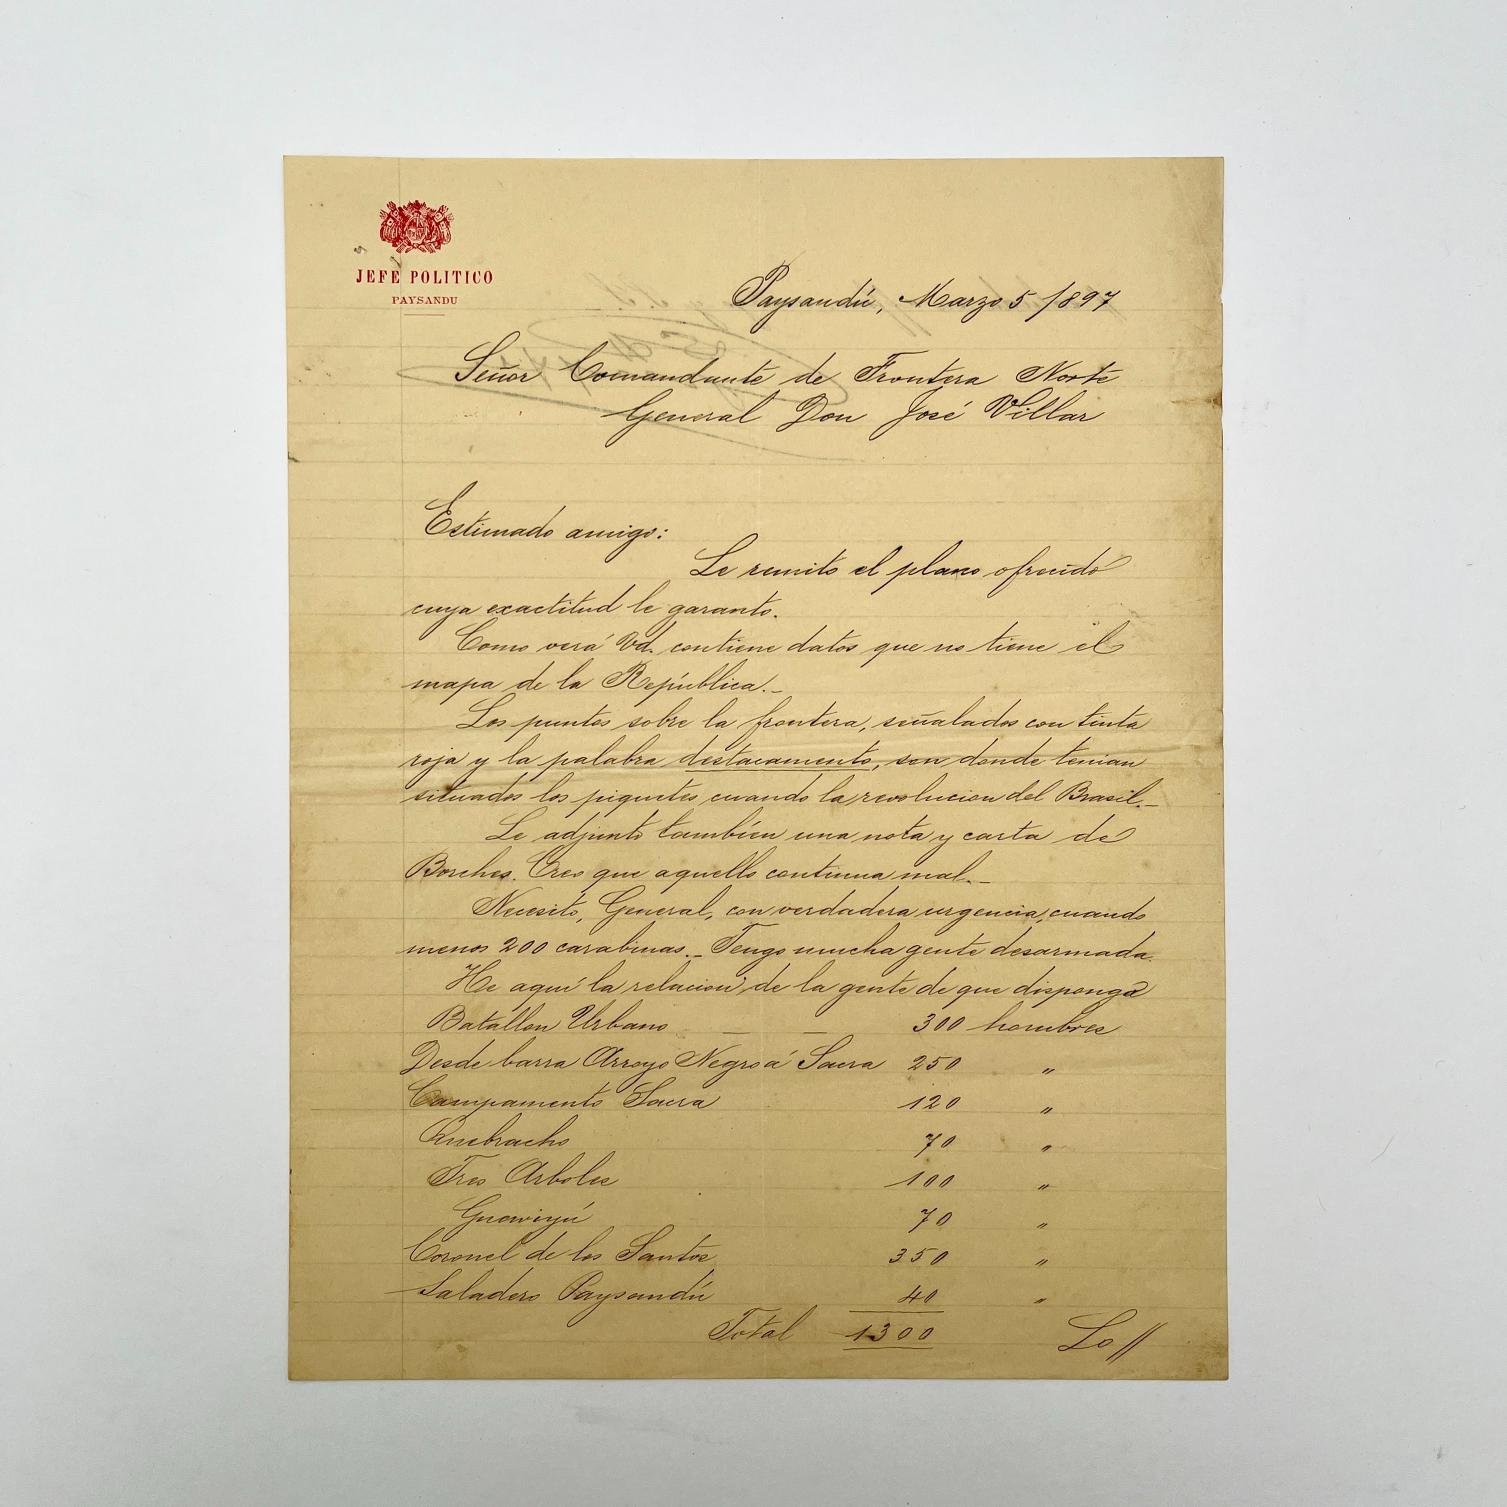 JEFE POLITICO
PAYSANDU
Paysandú, Marzo 5/897
Señor Comandante de Frontera Norte
General Don José Villar
Estimado amigo:
Le remito el plano ofrecido
cuya exactitud le garanto.
Como verá Vd. contiene datos que no tiene el
mapa de la República._
Los puntos sobre la frontera, señalados con tinta
roja y la palabra destacamento, son donde tenian
situados los piquetes cuando la revolucion del Brasil._
Le adjunto también una nota y carta de
Borches. Creo que aquello continua mal._
Necesito, General, con verdadera urgencia, cuando
menos 200 carabinas._ Tengo mucha gente desarmada.
He aquí la relacion de la gente de que dispongo
Batallon Urbano — — 300 hombres
Desde barra Arroyo Negro á Sacra 250 "
Campamento Sacra 120 "
Quebracho 70 "
Tres Arboles 100 "
Guaviyú 70 "
Coronel de los Santos 350 "
Saladero Paysandú 40 "
Total 1300 Lo //